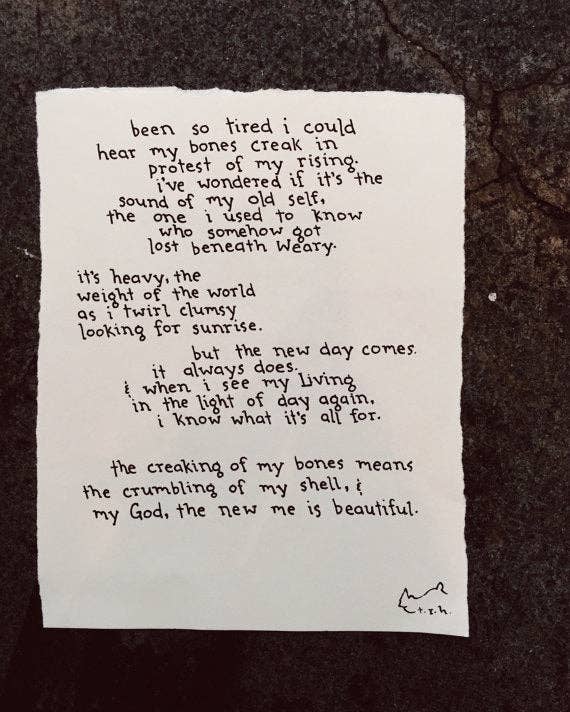 been so tired i could
hear my bones creak in
protest of my rising.
i've wondered if it's the
sound of my old self,
the one i used to know
who somehow got
lost beneath Weary.
it's heavy, the
weight of the world
as i twirl clumsy
looking for sunrise.
but the new day comes.
it always does.
& when i see my Living
in the light of day again,
i know what it's all for.
the creaking of my bones means
the crumbling of my shell, &
my God, the new me is beautiful.
t.r.h.